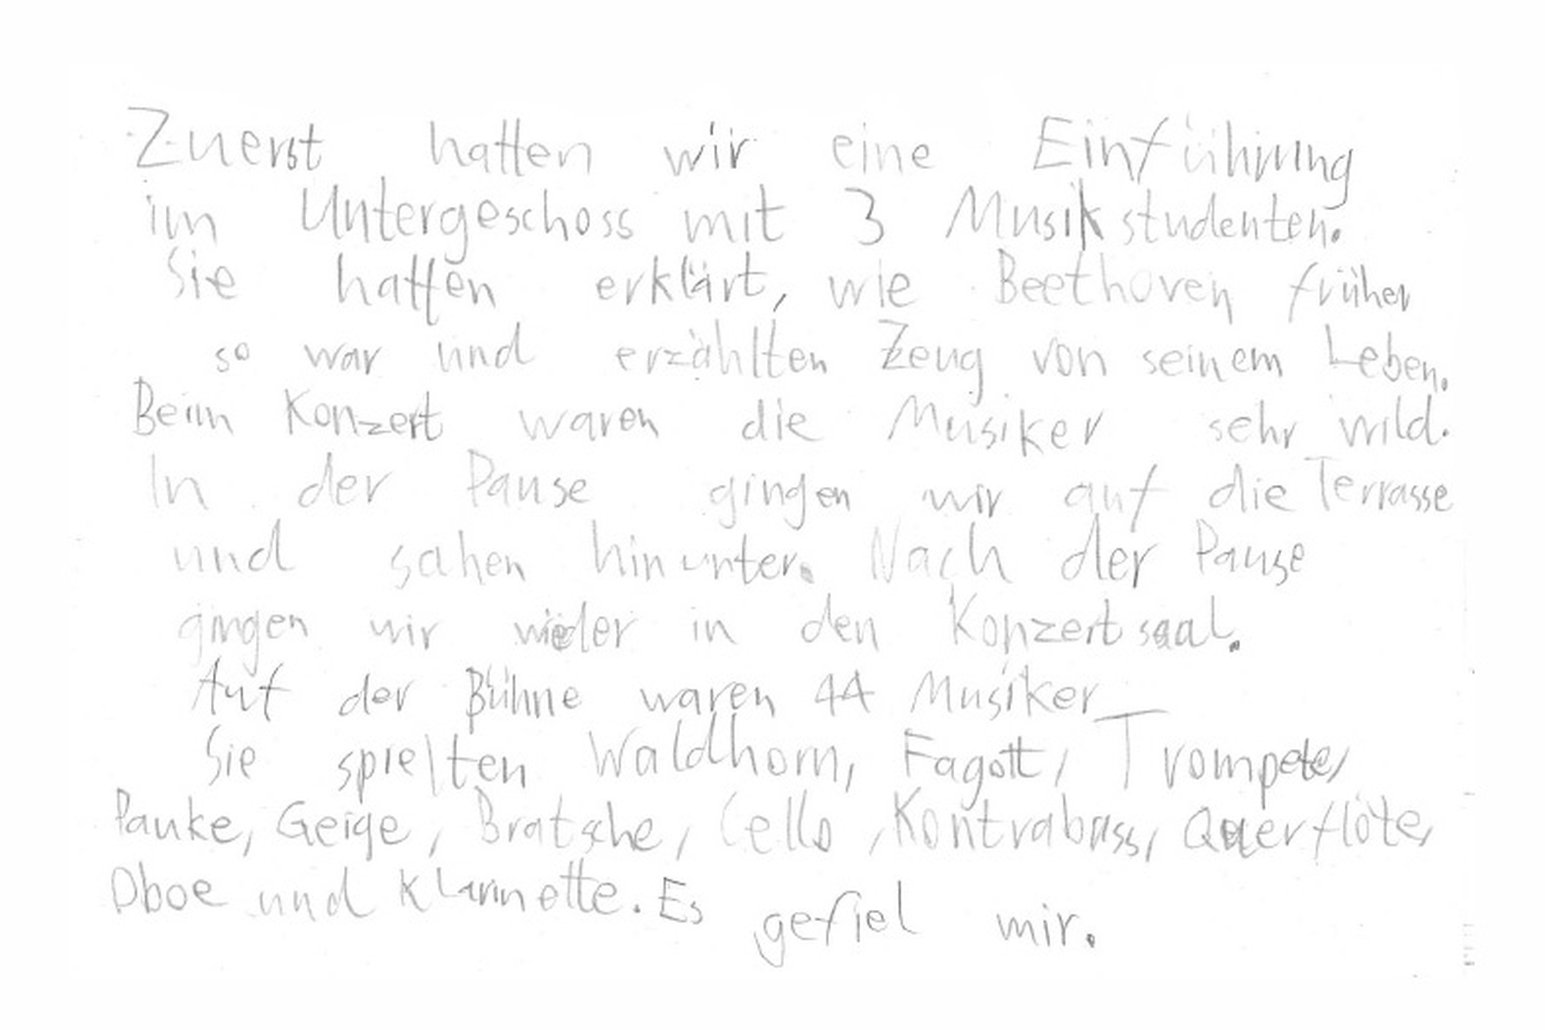 Zuerst hatten wir eine Einführung
im Untergeschoss mit 3 Musikstudenten.
Sie hatten erklärt, wie Beethoven früher
so war und erzählten Zeug von seinem Leben.
Beim Konzert waren die Musiker sehr wild.
In der Pause gingen wir auf die Terrasse
und sahen hinunter. Nach der Pause
gingen wir wieder in den Konzertsaal.
Auf der Bühne waren 44 Musiker
Sie spielten Waldhorn, Fagott, Trompete,
Pauke, Geige, Bratsche, Cello, Kontrabass, Querflöte,
Oboe und Klarinette. Es gefiel mir.